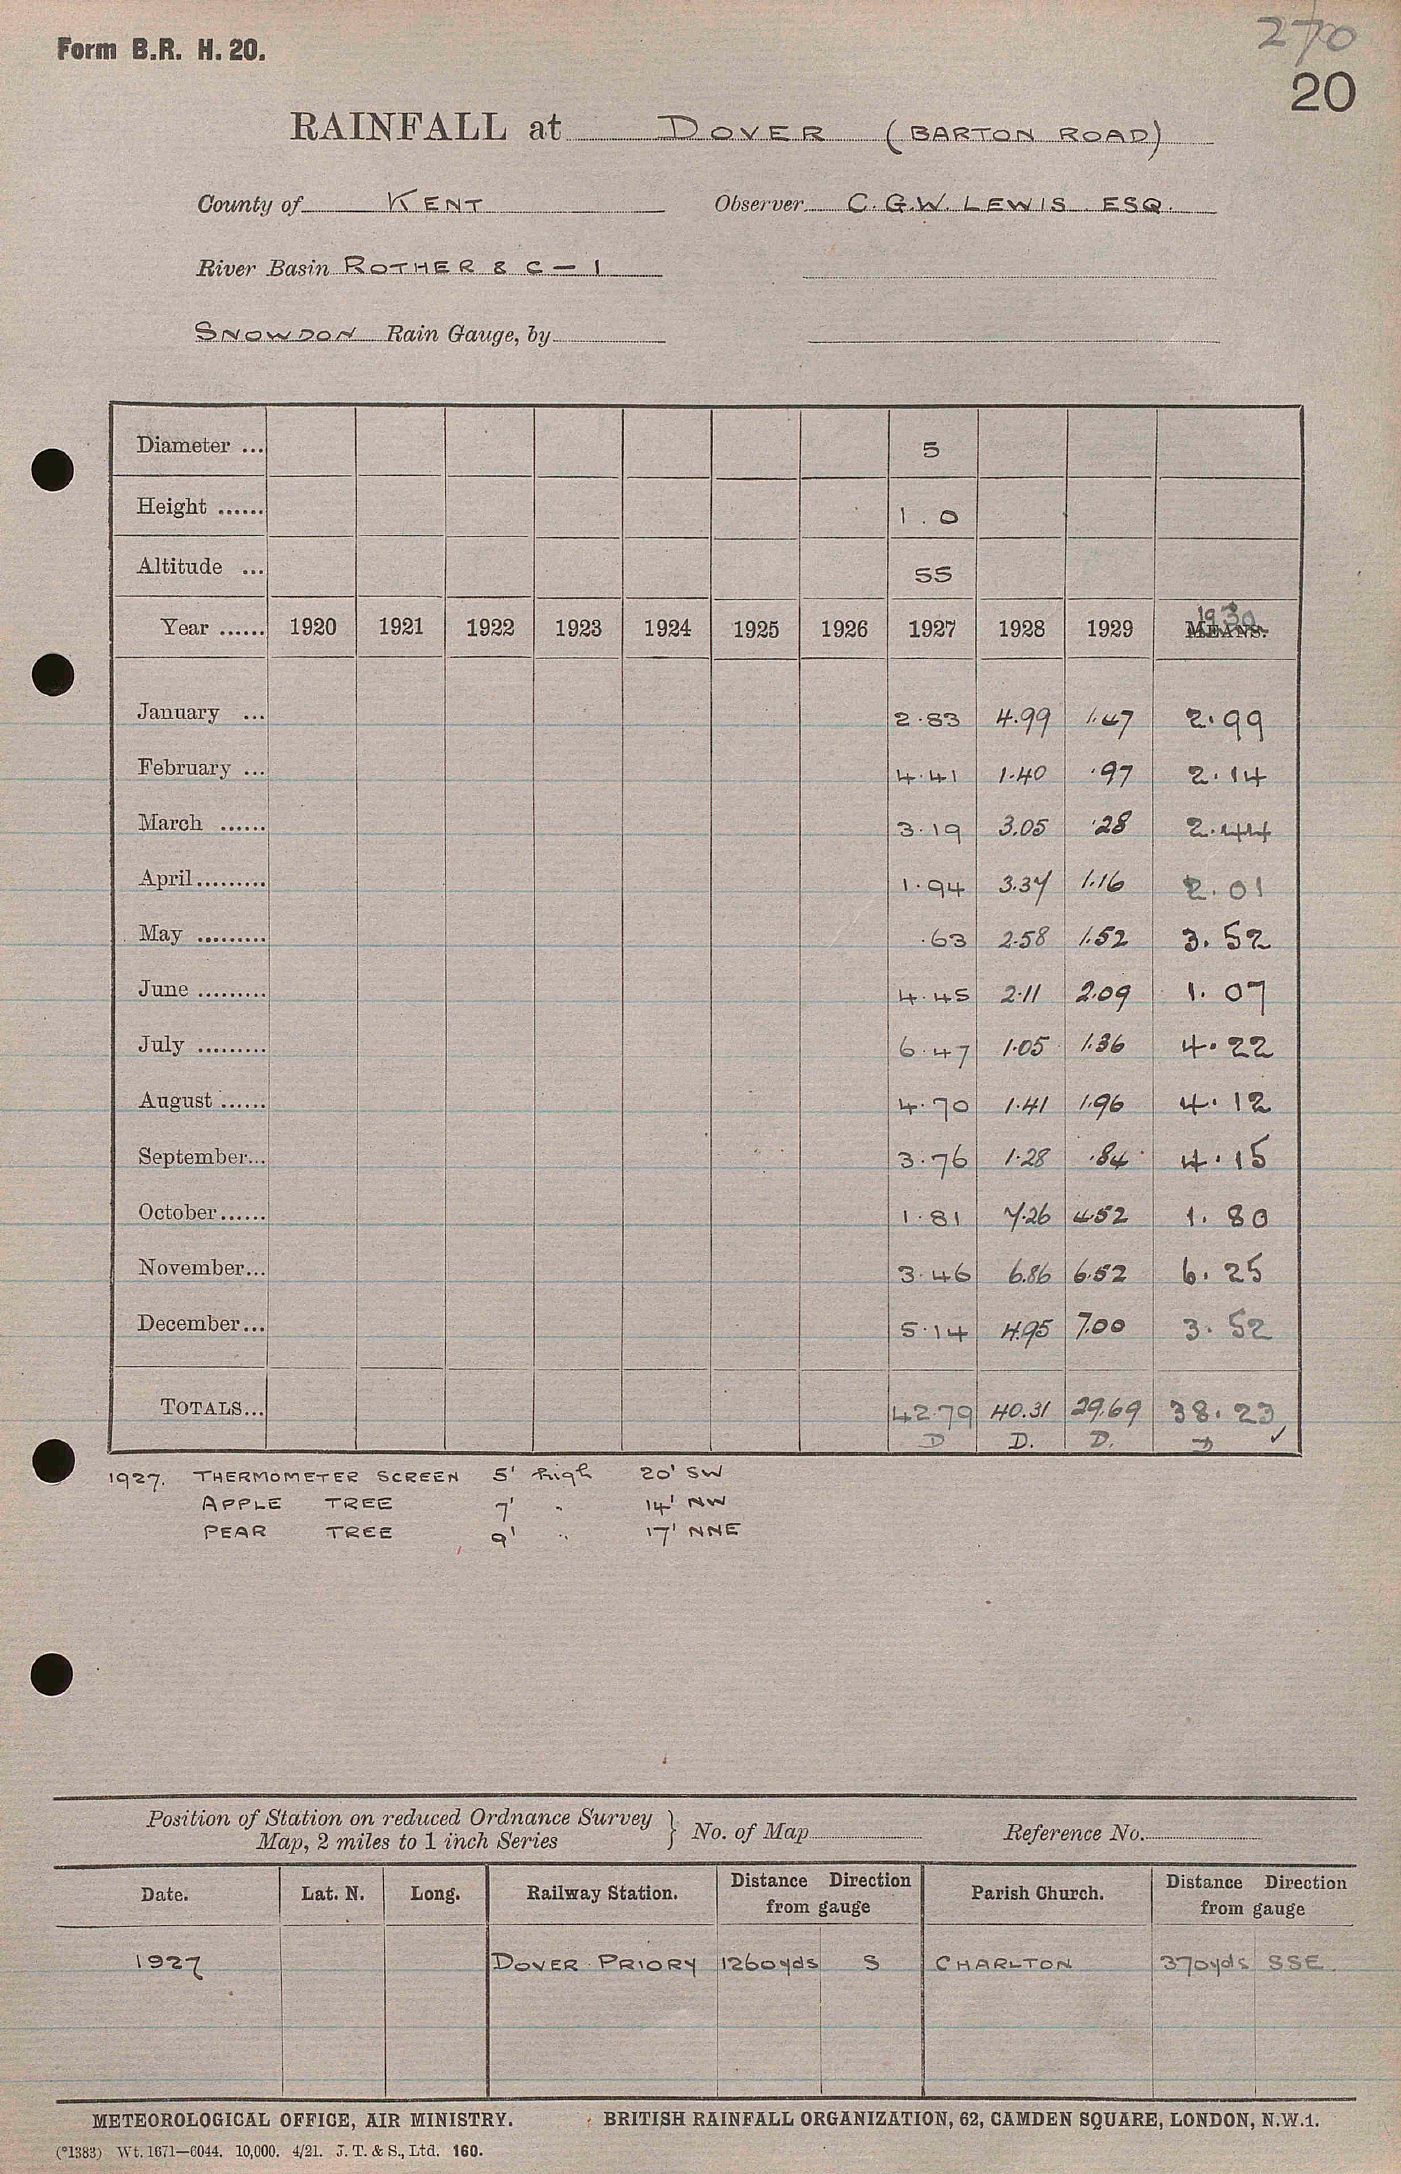 270
Form B.R. H. 20.
20
RAINFALL at DOVER (BARTON ROAD)
County of KENT Observer C. G. W. LEWIS ESQ.
River Basin ROTHER & C — 1
SNOWDON Rain Gauge, by
Diameter ... 5
Height ...... 1.0
Altitude ... 55
Year ...... 1920 1921 1922 1923 1924 1925 1926 1927 1928 1929 MEANS. 1930
January ... 2.83 4.99 1.47 2.99
February ... 4.41 1.40 .97 2.14
March ...... 3.19 3.05 .28 2.44
April ......... 1.94 3.37 1.16 2.01
May ......... .63 2.58 1.52 3.52
June ......... 4.45 2.11 2.09 1.07
July ......... 6.47 1.05 1.36 4.22
August ...... 4.70 1.41 1.96 4.12
September... 3.76 1.28 .84 4.15
October...... 1.81 7.26 4.52 1.80
November... 3.46 6.86 6.52 6.25
December... 5.14 4.95 7.00 3.52
TOTALS... 42.79 40.31 29.69 38.23
D D. D. D ✓
1927. THERMOMETER SCREEN 5' high 20' SW
APPLE TREE 7' " 14' NW
PEAR TREE 9' " 17' NNE
Position of Station on reduced Ordnance Survey
Map, 2 miles to 1 inch Series } No. of Map Reference No.
Date. Lat. N. Long. Railway Station. Distance Direction from gauge Parish Church. Distance Direction from gauge
1927 DOVER PRIORY 1260yds S CHARLTON 370yds SSE.
METEOROLOGICAL OFFICE, AIR MINISTRY. BRITISH RAINFALL ORGANIZATION, 62, CAMDEN SQUARE, LONDON, N.W.1.
(*1383) Wt. 1671—6044. 10,000. 4/21. J. T. & S., Ltd. 160.